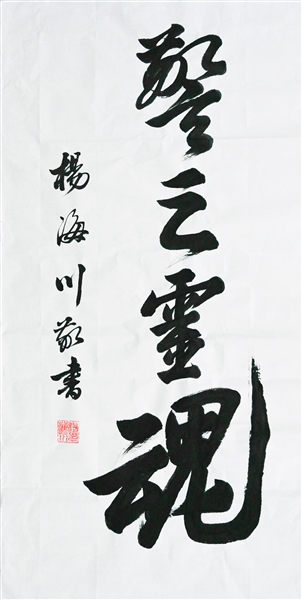 警之靈魂
楊海川敬書